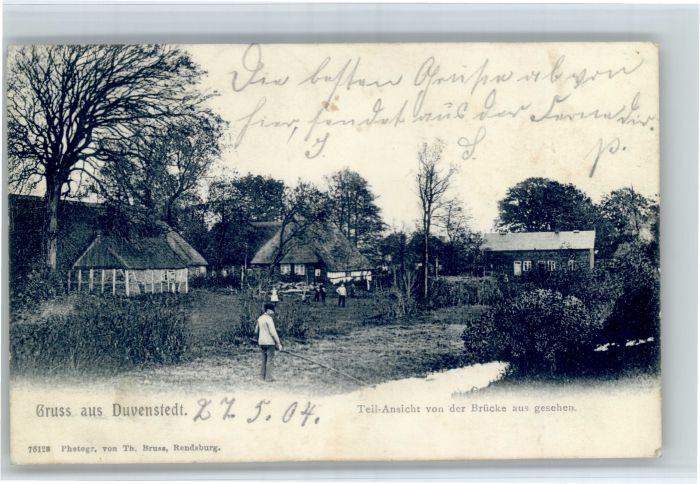 Die besten Grüße ab von
hier, sendet aus der Ferne dir.
J. S. P.
Gruss aus Duvenstedt. 27.5.04.
Teil-Ansicht von der Brücke aus gesehen.
75128 Photogr. von Th. Bruss, Rendsburg.